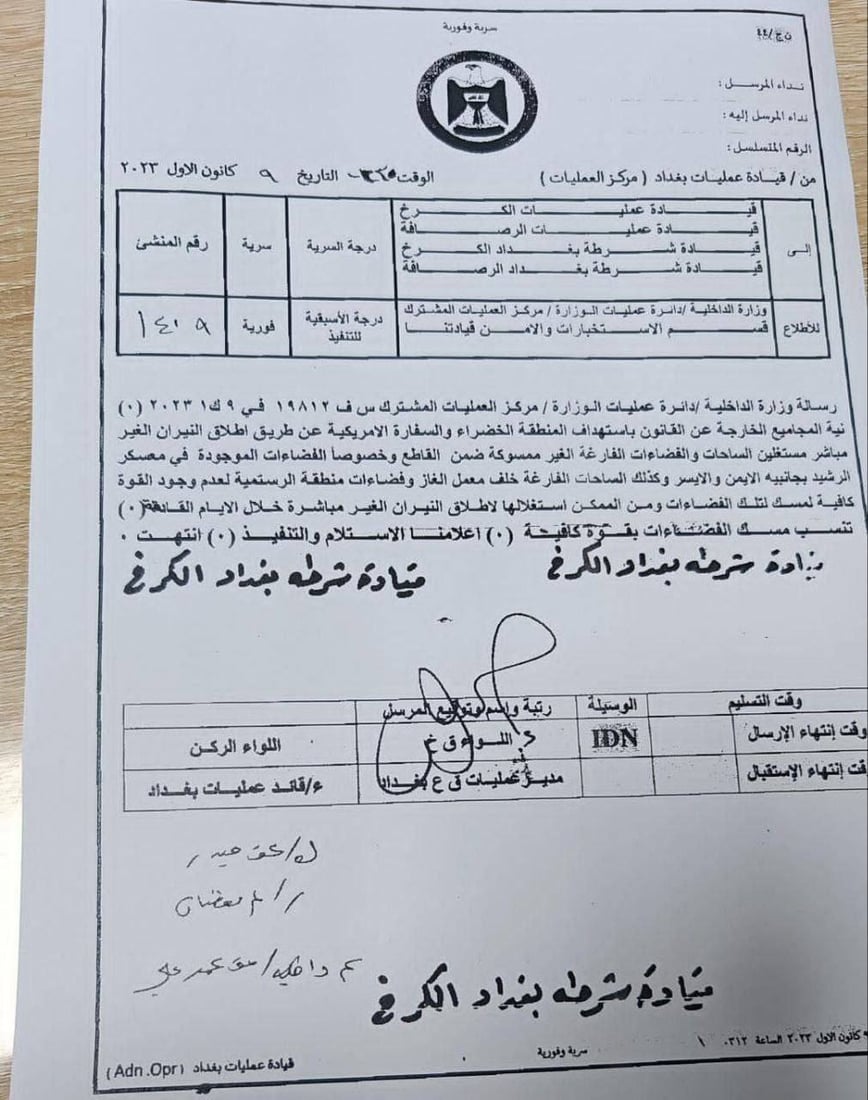 سرية وفورية
نداء المرسل :
نداء المرسل إليه :
الرقم المتسلسل :
من / قيادة عمليات بغداد ( مركز العمليات ) الوقت التاريخ ٩ كانون الاول ٢٠٢٣
إلى
قيادة عمليات الكرخ
قيادة عمليات الرصافة
قيادة شرطة بغداد الكرخ
قيادة شرطة بغداد الرصافة
درجة السرية
سرية
رقم المنشئ
للأطلاع
وزارة الداخلية /دائرة عمليات الوزارة / مركز العمليات المشترك
قسم الاستخبارات والامن قيادتنا
درجة الأسبقية للتنفيذ
فورية
١٤٠٩
رسالة وزارة الداخلية /دائرة عمليات الوزارة / مركز العمليات المشترك س ف ١٩٨١٢ في ٩ ك١ ٢٠٢٣ (٠)
نية المجاميع الخارجة عن القانون باستهداف المنطقة الخضراء والسفارة الامريكية عن طريق اطلاق النيران الغير
مباشر مستغلين الساحات والفضاءات الفارغة الغير ممسوكة ضمن القاطع وخصوصاً الفضاءات الموجودة في معسكر
الرشيد بجانبيه الايمن والايسر وكذلك الساحات الفارغة خلف معمل الغاز وفضاءات منطقة الرستمية لعدم وجود القوة
كافية لمسك لتلك الفضاءات ومن الممكن استغلالها لاطلاق النيران الغير مباشرة خلال الايام القادمة(٠)
تنسب مسك الفضاءات بقوة كافية (٠) اعلامنا الاستلام والتنفيذ (٠) انتهت ٠
قيادة شرطه بغداد الكرخ
قيادة شرطه بغداد الكرخ
وقت التسليم
الوسيلة
رتبة واسم وتوقيع المرسل
وقت إنتهاء الإرسال
IDN
اللواء ق خ
اللواء الركن
وقت إنتهاء الإستقبال
مدير عمليات ق ع بغداد
ع/قائد عمليات بغداد
قيادة شرطه بغداد الكرخ
كانون الاول ٢٠٢٣ الساعة ٠٣١٢
١
سرية وفورية
قيادة عمليات بغداد (Adn .Opr)